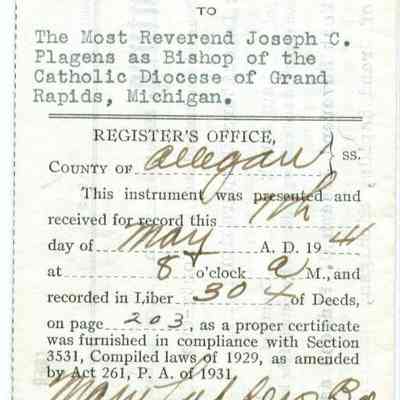 TO
The Most Reverend Joseph C.
Plagens as Bishop of the
Catholic Diocese of Grand
Rapids, Michigan.
REGISTER'S OFFICE,
COUNTY OF Allegan } ss.
This instrument was presented and
received for record this 7th
day of May A. D. 1941
at 8 o'clock A M., and
recorded in Liber 304 of Deeds,
on page 203, as a proper certificate
was furnished in compliance with Section
3531, Compiled laws of 1929, as amended
by Act 261, P. A. of 1931.